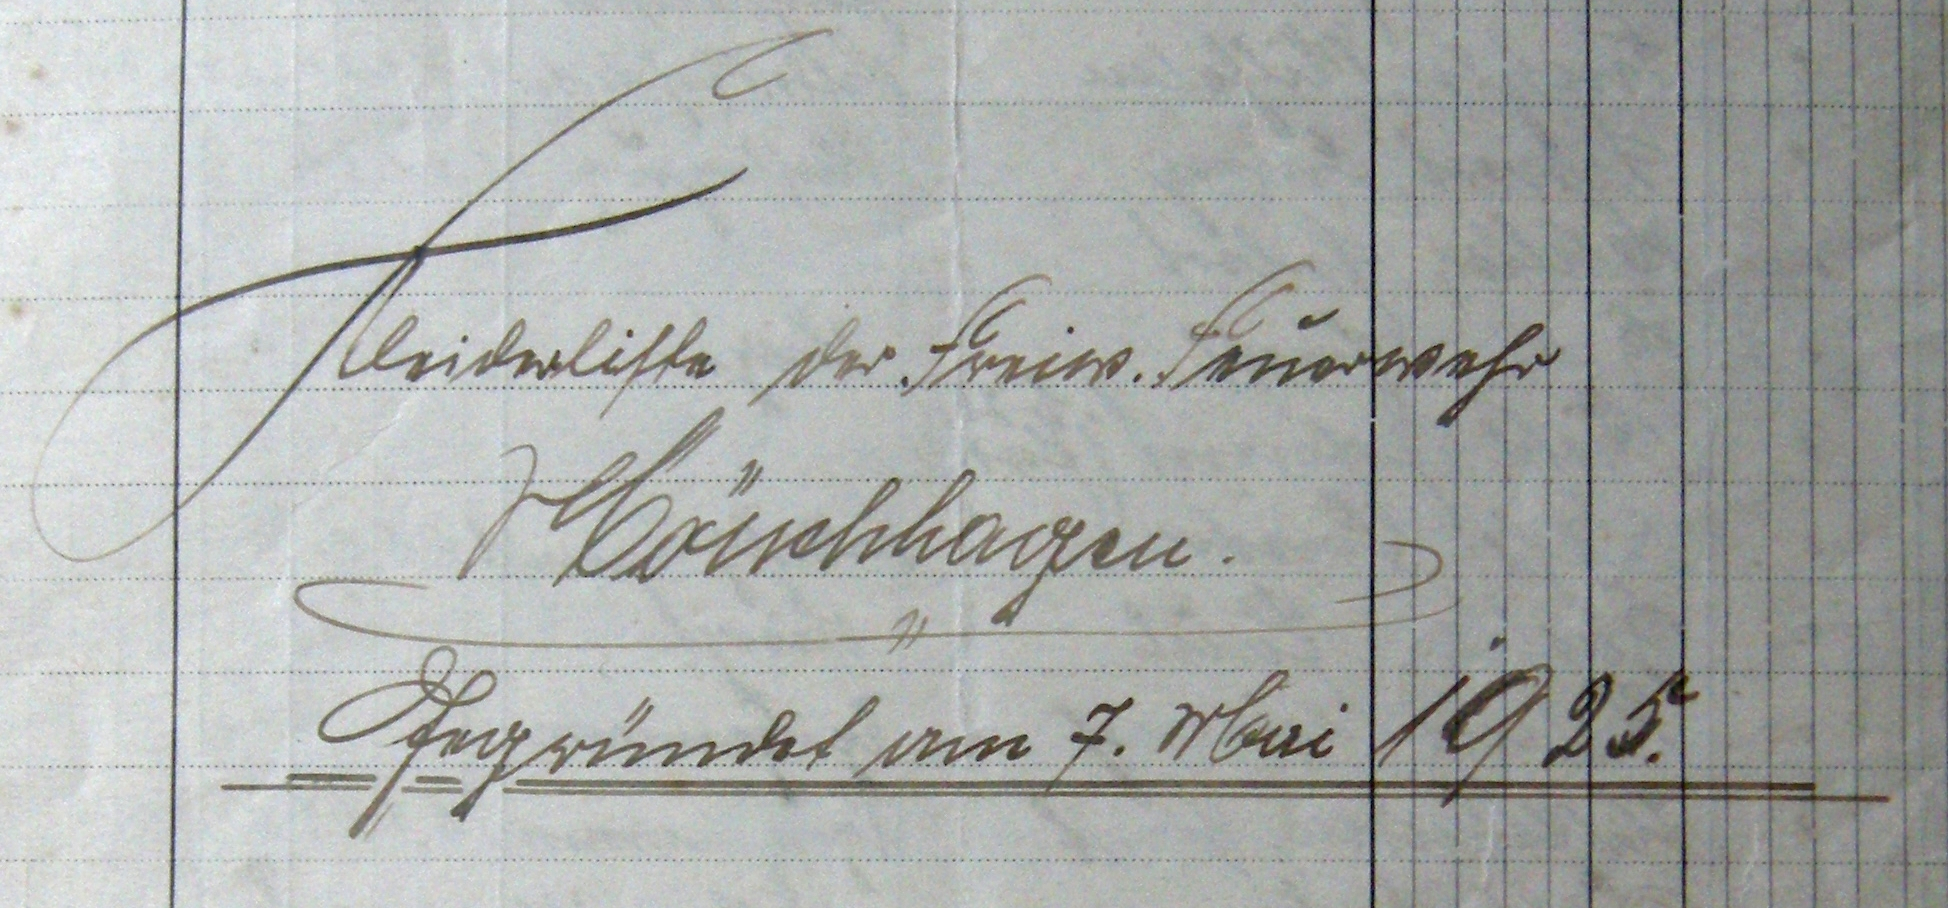 Kleiderliste der Freiw. Feuerwehr
Mönchhagen.
Gegründet am 7. Mai 1925.